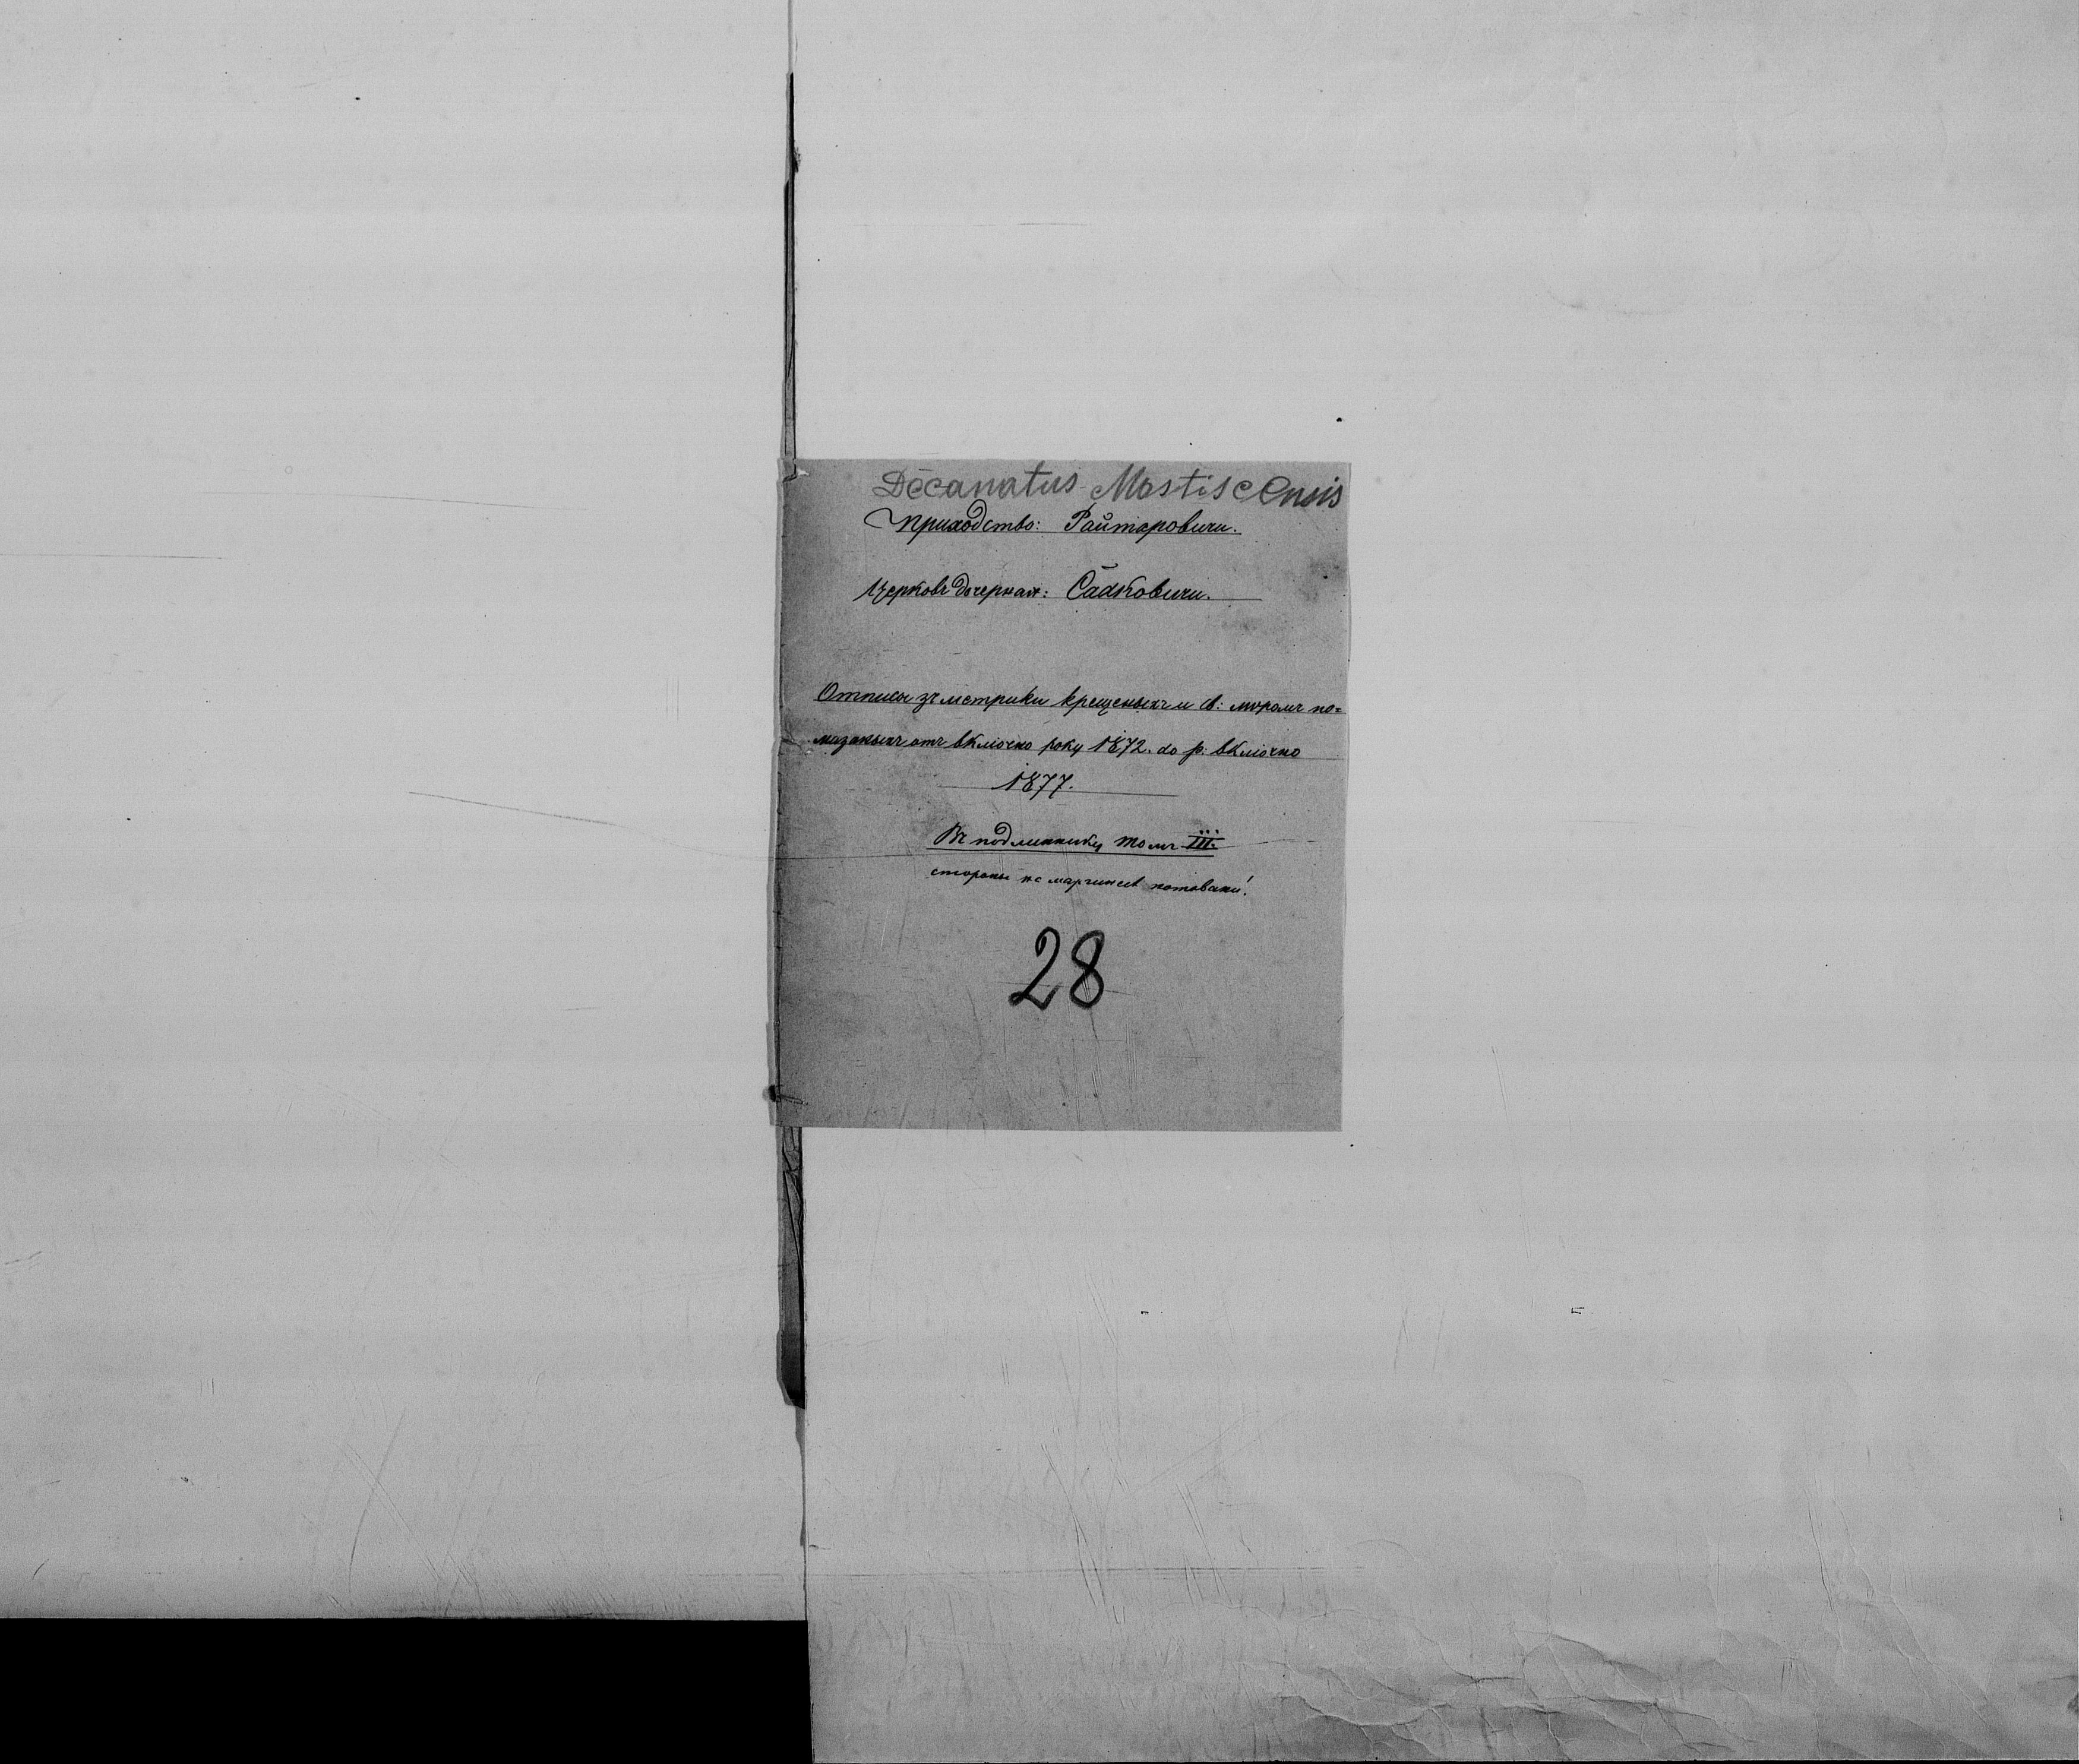 Decanatus Mostiscensis
Приходство: Райтаровичи.
Церковь дочерная: Садковичи.
Отписы зъ метрики крещеныхъ и св: мѵромъ по=
мазаныхъ отъ включно року 1872. до р: включно
1877.
Въ подлиннику томъ III.
стороны не марґинесѣ нотовани!
28